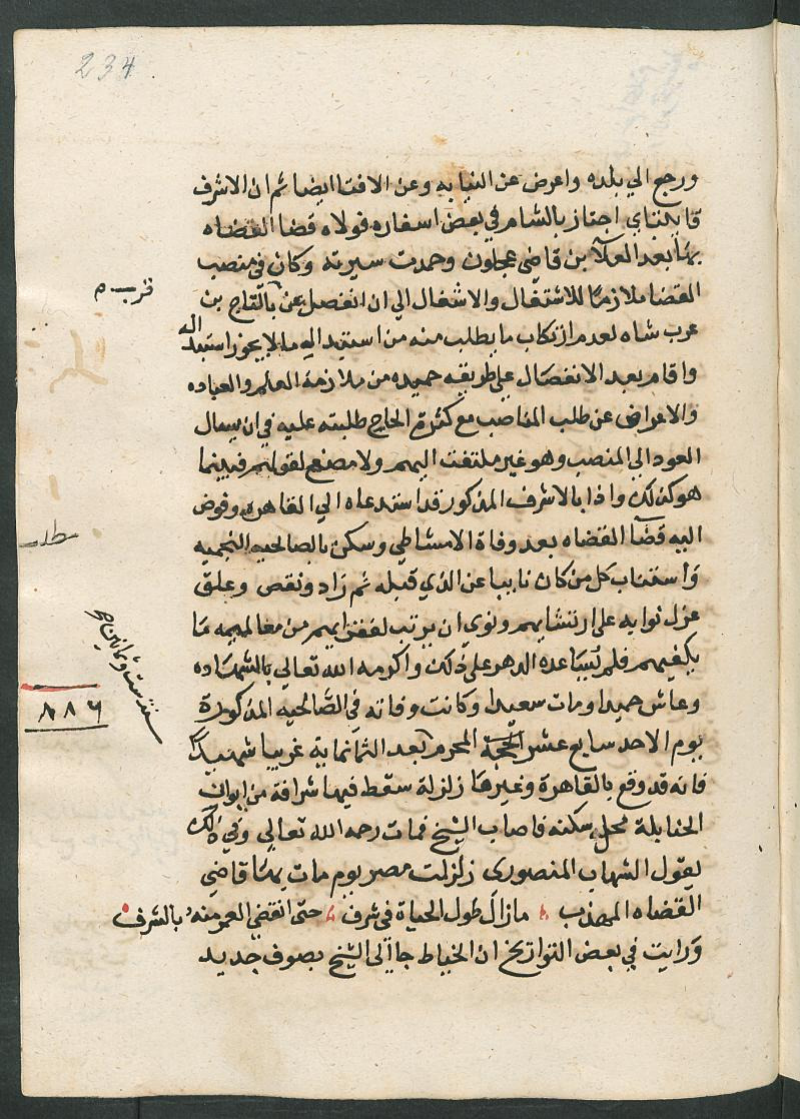 234
ورجع الي بلده واعرض عن النيابه وعن الافتا ايضا ثم ان الاشرف
قايتباي اجتاز بالشام في بعض اسفاره فولاه قضا القضاه
بها بعد العلآ بن قاضي عجلون وحمدت سيرته وكان في منصب
القضا ملازما للاشتغال والاشغال الي ان انفصل عن بالتاج بن
عرب شاه لعدم ارتكاب ما يطلب منه من استبداله ما لا يجوز استبداله
واقام بعد الانفصال علي طريقه حميده من ملازمة العلم والعباده
والاعراض عن طلب المناصب مع كثرة الحاح طلبته عليه في ان يسال
العود الي المنصب وهو غير ملتفت اليهم ولا مصنع لقولهم فبينما
هو كذلك واذا بالاشرف المذكور قد استدعاه الي القاهره وفوض
اليه قضآ القضاه بعد وفاة الامشاطي وسكن بالصالحيه النجميه
واستناب كل من كان نايبا عن الذي قبله ثم زاد ونقص وعلق
عزل نوابه علي ارتشايهم ونوي ان يرتب لفقرايهم من معاليمه ما
يكفيهم فلم يساعده الدهر علي ذلك واكرمه الله تعالي بالشهاده
وعاش حميدا ومات سعيدا وكانت وفاته في الصالحيه المذكورة
يوم الاحد سابع عشر المحرم بعد الثمانماية غريبا شهيدا
فانه قد وقع بالقاهرة وغيرها زلزلة سقط فيها شرافة من ايوان
الحنابلة محل سكنه فاصاب الشيخ فمات رحمه الله تعالي وفي ذلك
يقول الشهاب المنصوري زلزلت مصر يوم مات بها قاضي
القضاه المهذب ما زال طول الحياة في شرف حتي انقضي العمر منه بالشرف
ورايت في بعض التواريخ ان الخياط جا الي الشيخ بصوف جديد
سنة ست وثمانين
٨٨٦